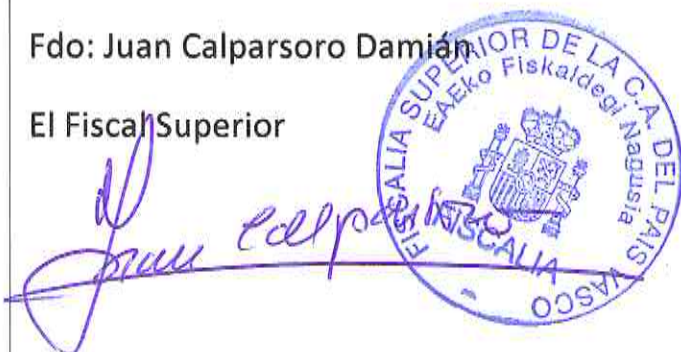 Fdo: Juan Calparsoro Damián
El Fiscal Superior
Juan Calparsoro
FISCALIA SUPERIOR DE LA C.A. DEL PAIS VASCO
EAEko Fiskaldegi Nagusia
FISCALIA